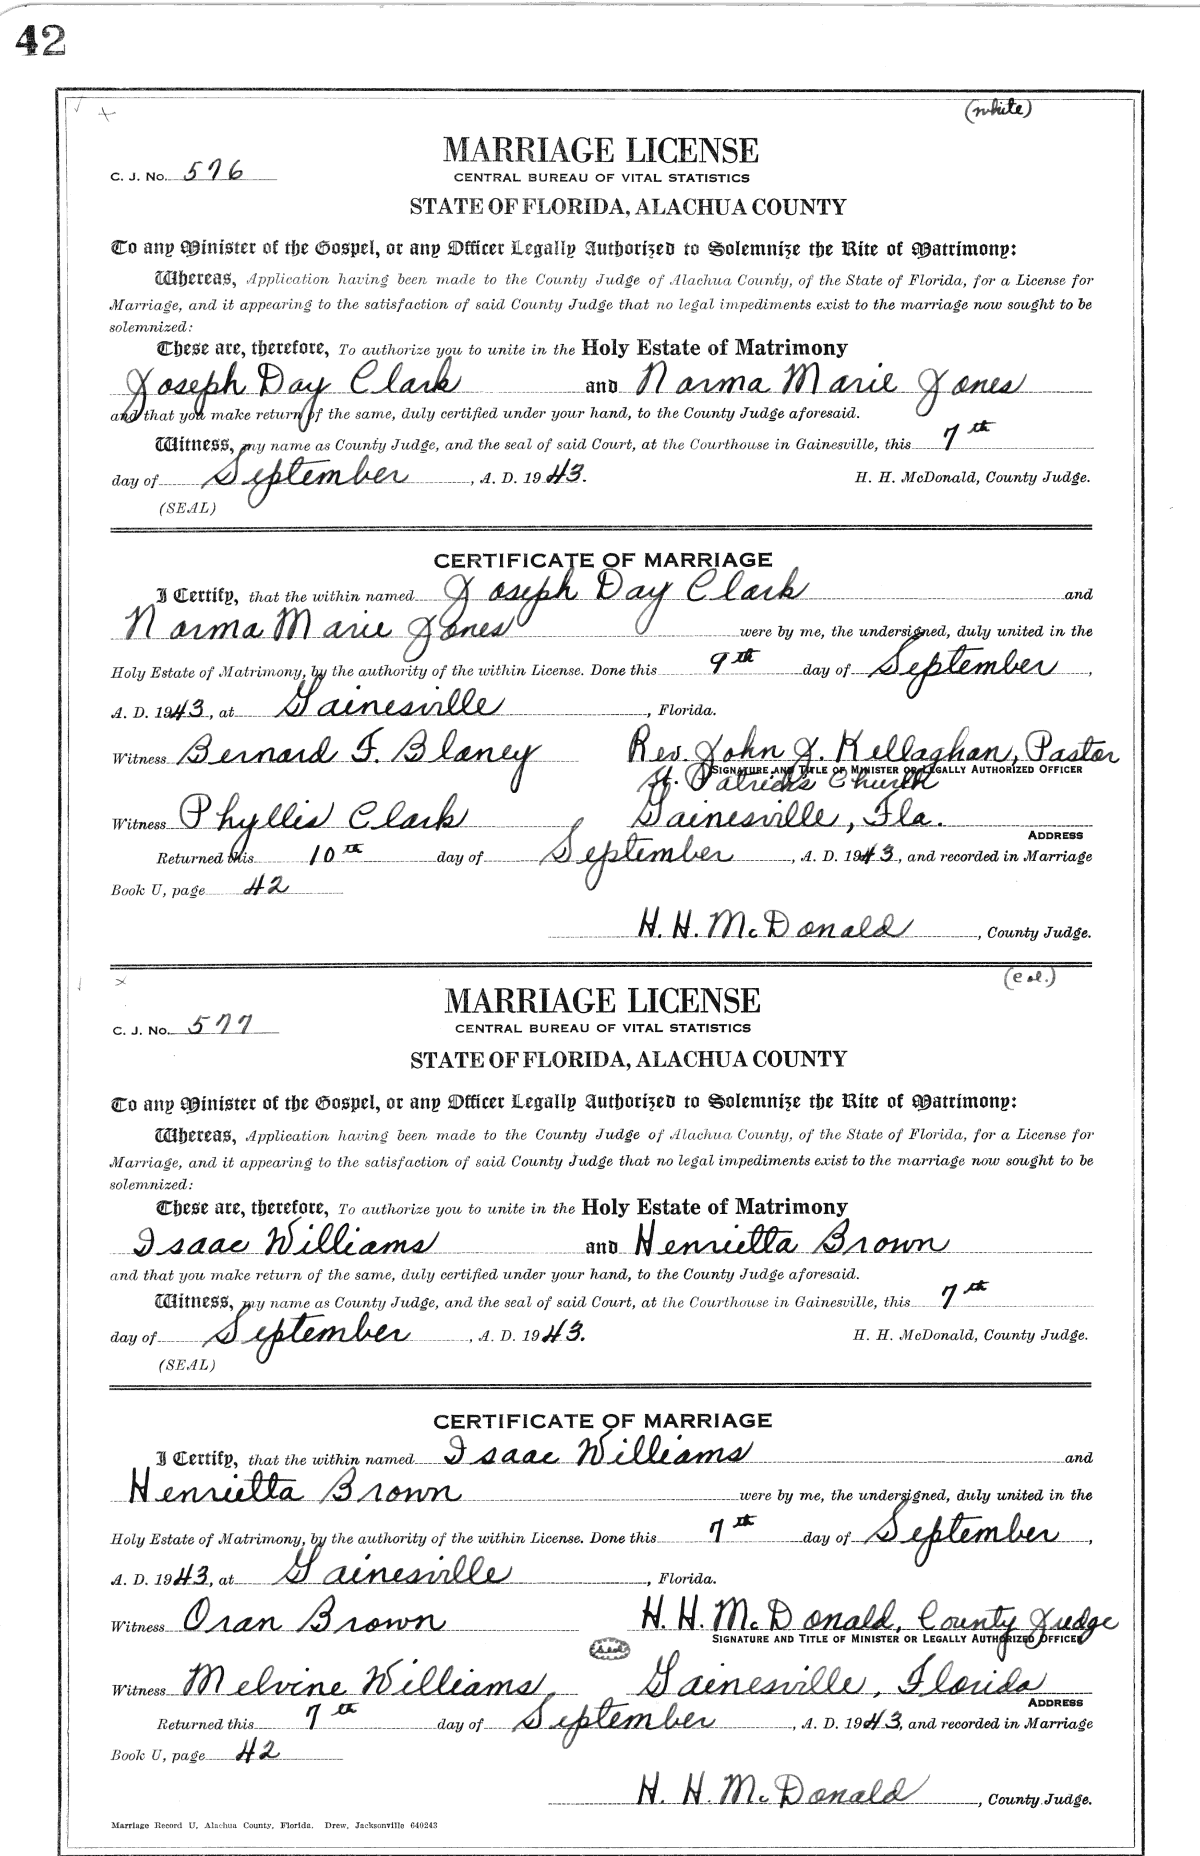 42
(white)
MARRIAGE LICENSE
C. J. No. 576
CENTRAL BUREAU OF VITAL STATISTICS
STATE OF FLORIDA, ALACHUA COUNTY
To any Minister of the Gospel, or any Officer Legally Authorized to Solemnize the Rite of Matrimony:
Whereas, Application having been made to the County Judge of Alachua County, of the State of Florida, for a License for
Marriage, and it appearing to the satisfaction of said County Judge that no legal impediments exist to the marriage now sought to be
solemnized:
These are, therefore, To authorize you to unite in the Holy Estate of Matrimony
Joseph Day Clark and Norma Marie Jones
and that you make return of the same, duly certified under your hand, to the County Judge aforesaid.
Witness, my name as County Judge, and the seal of said Court, at the Courthouse in Gainesville, this 7th
day of September, A. D. 1943. H. H. McDonald, County Judge.
(SEAL)
CERTIFICATE OF MARRIAGE
I Certify, that the within named Joseph Day Clark and
Norma Marie Jones were by me, the undersigned, duly united in the
Holy Estate of Matrimony, by the authority of the within License. Done this 9th day of September,
A. D. 1943, at Gainesville, Florida.
Witness Bernard F. Blaney Rev. John J. Kellaghan, Pastor
SIGNATURE AND TITLE OF MINISTER OR LEGALLY AUTHORIZED OFFICER
St. Patricks Church
Witness Phyllis Clark Gainesville, Fla.
ADDRESS
Returned this 10th day of September, A. D. 1943, and recorded in Marriage
Book U, page 42
H. H. McDonald, County Judge.
(col.)
MARRIAGE LICENSE
C. J. No. 577
CENTRAL BUREAU OF VITAL STATISTICS
STATE OF FLORIDA, ALACHUA COUNTY
To any Minister of the Gospel, or any Officer Legally Authorized to Solemnize the Rite of Matrimony:
Whereas, Application having been made to the County Judge of Alachua County, of the State of Florida, for a License for
Marriage, and it appearing to the satisfaction of said County Judge that no legal impediments exist to the marriage now sought to be
solemnized:
These are, therefore, To authorize you to unite in the Holy Estate of Matrimony
Isaac Williams and Henrietta Brown
and that you make return of the same, duly certified under your hand, to the County Judge aforesaid.
Witness, my name as County Judge, and the seal of said Court, at the Courthouse in Gainesville, this 7th
day of September, A. D. 1943. H. H. McDonald, County Judge.
(SEAL)
CERTIFICATE OF MARRIAGE
I Certify, that the within named Isaac Williams and
Henrietta Brown were by me, the undersigned, duly united in the
Holy Estate of Matrimony, by the authority of the within License. Done this 7th day of September,
A. D. 1943, at Gainesville, Florida.
Witness Oran Brown H. H. McDonald, County Judge
SIGNATURE AND TITLE OF MINISTER OR LEGALLY AUTHORIZED OFFICER
(seal)
Witness Melvine Williams Gainesville, Florida
ADDRESS
Returned this 7th day of September, A. D. 1943, and recorded in Marriage
Book U, page 42
H. H. McDonald, County Judge.
Marriage Record U, Alachua County, Florida. Drew, Jacksonville 640243